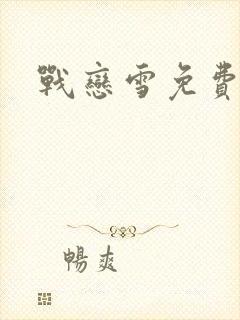 戰戀雪免費
暢爽